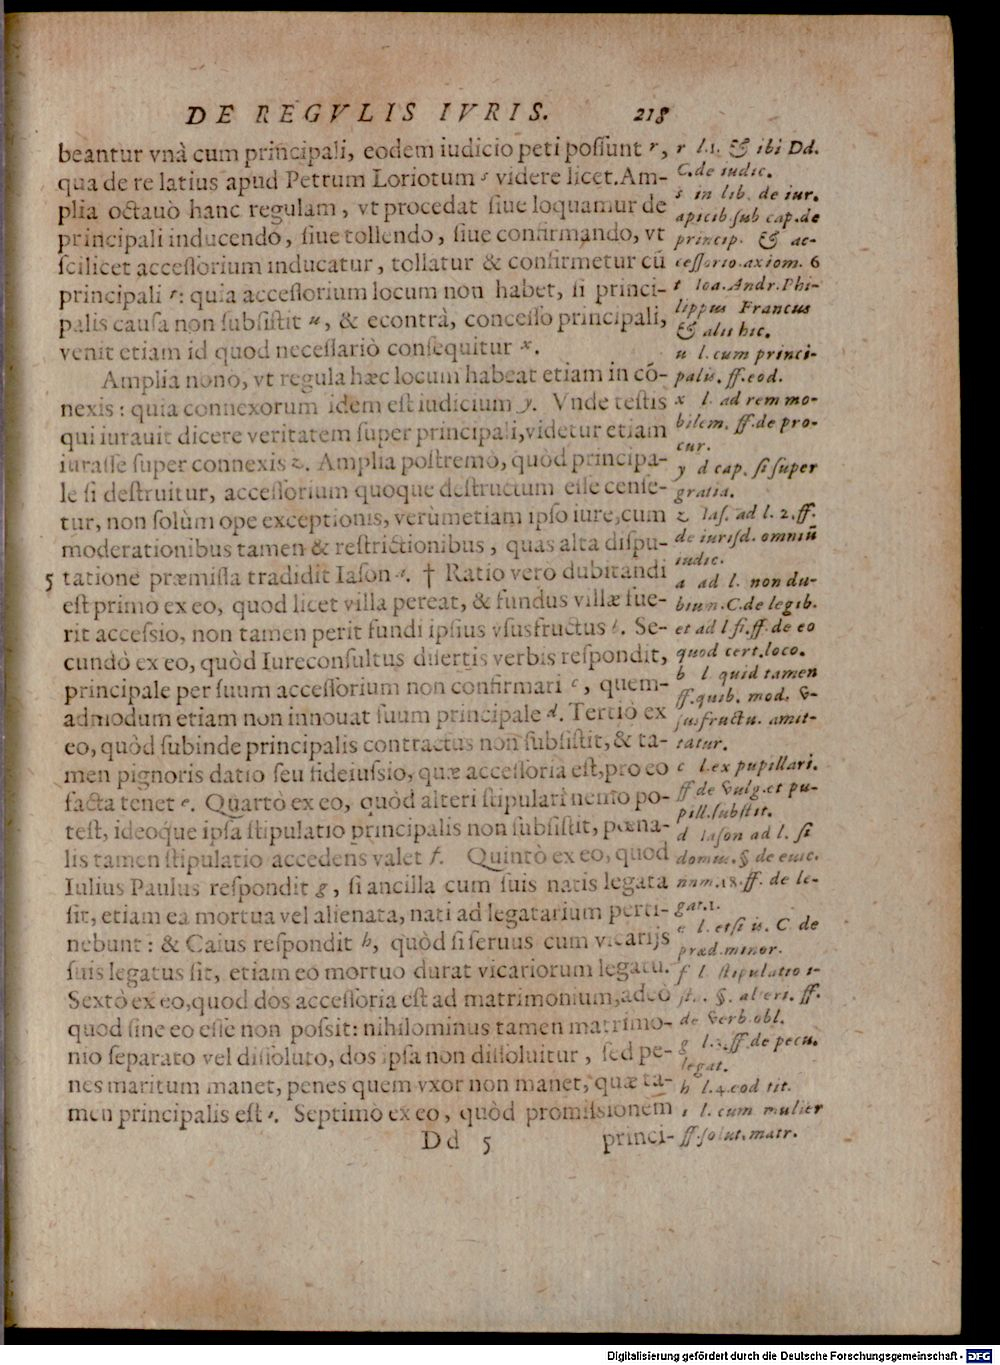 DE REGVLIS IVRIS. 218
beantur vnà cum principali, eodem iudicio peti possunt r,
qua de re latius apud Petrum Loriotum s videre licet. Am-
plia octauò hanc regulam, vt procedat siue loquamur de
principali inducendo, siue tollendo, siue confirmando, vt
scilicet accessorium inducatur, tollatur & confirmetur cū
principali t: quia accessorium locum non habet, si princi-
palis causa non subsistit u, & econtrà, concesso principali,
venit etiam id quod necessariò consequitur x.
Amplia nonò, vt regula hæc locum habeat etiam in cō-
nexis: quia connexorum idem est iudicium y. Vnde testis
qui iurauit dicere veritatem super principali, videtur etiam
iurasse super connexis z. Amplia postremò, quòd principa-
le si destruitur, accessorium quoque destructum esse cense-
tur, non solùm ope exceptionis, verùmetiam ipso iure, cum
moderationibus tamen & restrictionibus, quas alta dispu-
5 tatione præmissa tradidit Iason a. † Ratio verò dubitandi
est primò ex eo, quod licet villa pereat, & fundus villæ fue-
rit accessio, non tamen perit fundi ipsius vsusfructus b. Se-
cundò ex eo, quòd Iureconsultus disertis verbis respondit,
principale per suum accessorium non confirmari c, quem-
admodum etiam non innouat suum principale d. Tertiò ex
eo, quòd subinde principalis contractus non subsistit, & ta-
men pignoris datio seu fideiussio, quæ accessoria est, pro eo
facta tenet e. Quartò ex eo, quòd alteri stipulari nemo po-
test, ideoque ipsa stipulatio principalis non subsistit, pœna-
lis tamen stipulatio accedens valet f. Quintò ex eo, quod
Iulius Paulus respondit g, si ancilla cum suis natis legata
sit, etiam ea mortua vel alienata, nati ad legatarium perti-
nebunt: & Caius respondit h, quòd si seruus cum vicarijs
suis legatus sit, etiam eo mortuo durat vicariorum legatū.
Sextò ex eo, quod dos accessoria est ad matrimonium, adeò
quod sine eo esse non possit: nihilominus tamen matrimo-
nio separato vel dissoluto, dos ipsa non dissoluitur, sed pe-
nes maritum manet, penes quem vxor non manet, quæ ta-
men principalis est i. Septimò ex eo, quòd promissionem
Dd 5 princi-
r l.1. & ibi Dd.
C. de iudic.
s in lib. de iur.
apicib. sub cap. de
princip. & ac-
cessorio. axiom. 6
t Ioa. Andr. Phi-
lippus Francus
& alii hic.
u l. cum princi-
palis. ff. eod.
x l. ad rem mo-
bilem. ff. de pro-
cur.
y d cap. si super
gratia.
z Ias. ad l. 2. ff.
de iurisd. omniū
iudic.
a ad l. non du-
bium. C. de legib.
et ad l. fi. ff. de eo
quod cert. loco.
b l. quid tamen
ff. quib. mod. v-
susfructu. amit-
tatur.
c l. ex pupillari.
ff de vulg. et pu-
pill. substit.
d Iason ad l. si
domus. § de euic.
num. 18. ff. de le-
gat. 1.
e l. etsi is. C. de
præd. minor.
f l. stipulatio i-
st.. §. alteri. ff.
de verb. obl.
g l. 3. ff. de pecu.
legat.
h l. 4. eod tit.
i l. cum mulier
ff. solut. matr.
Digitalisierung gefördert durch die Deutsche Forschungsgemeinschaft - DFG